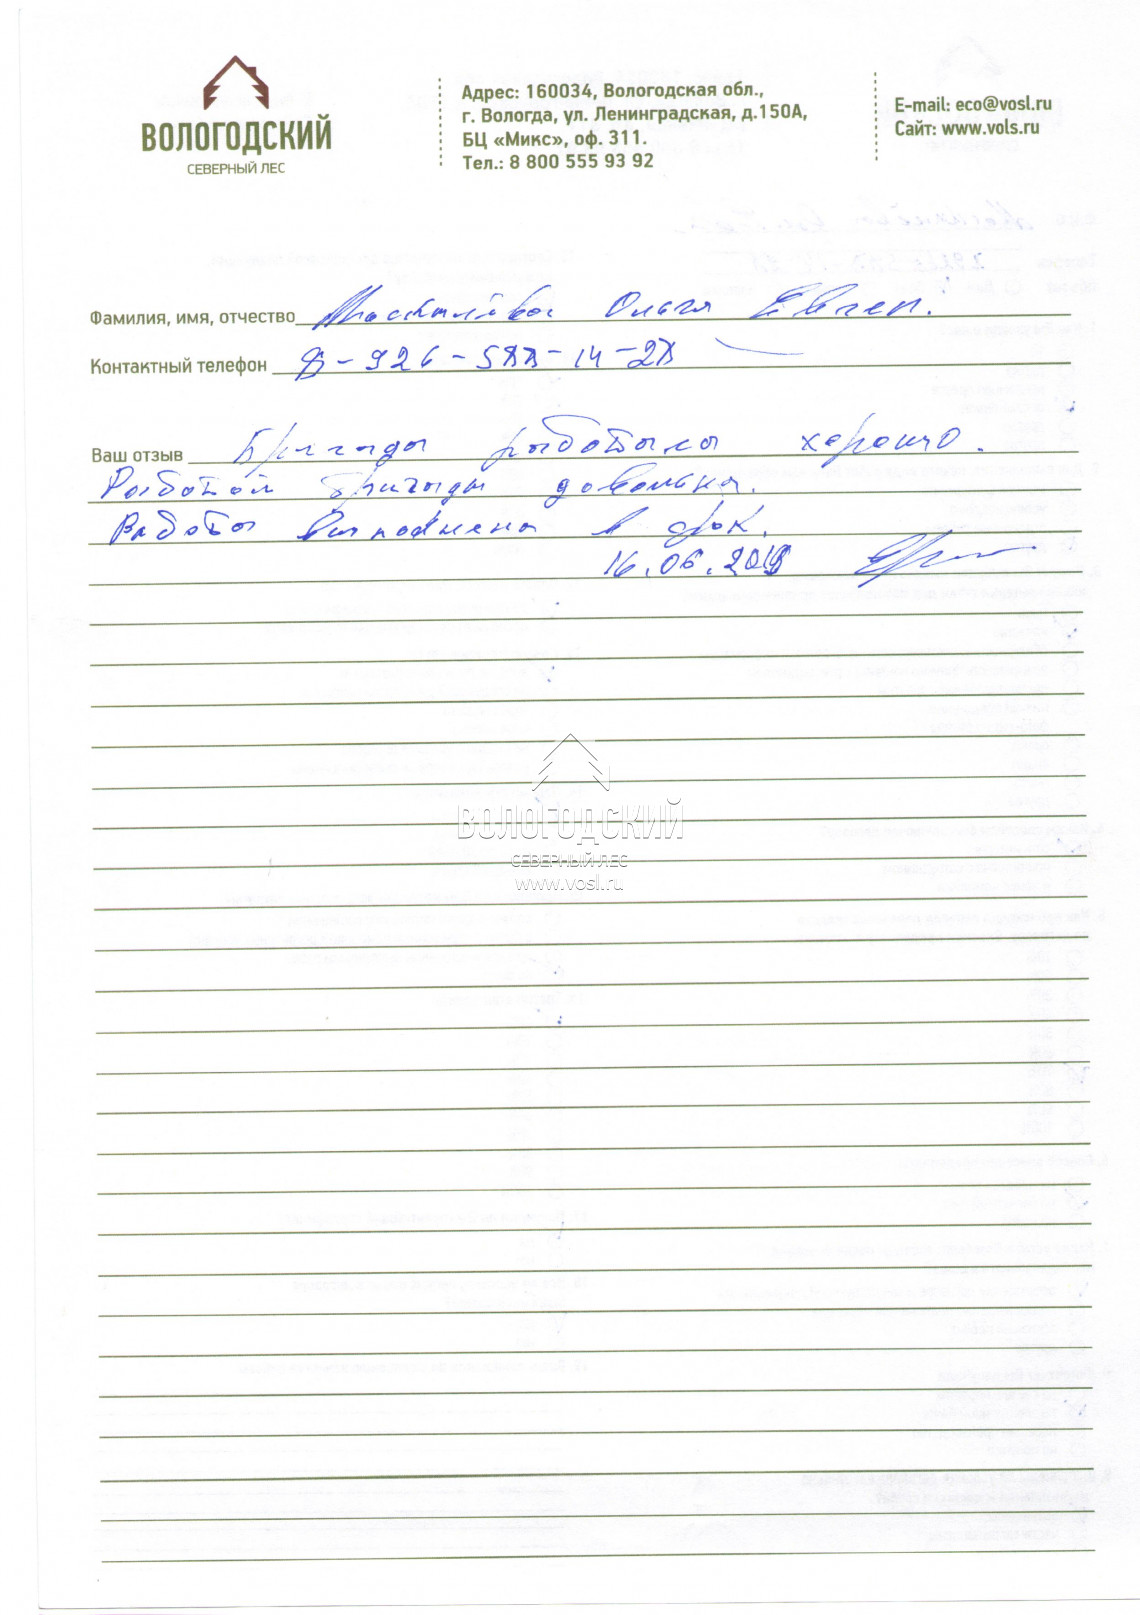 ВОЛОГОДСКИЙ
СЕВЕРНЫЙ ЛЕС
Адрес: 160034, Вологодская обл.,
г. Вологда, ул. Ленинградская, д.150А,
БЦ «Микс», оф. 311.
Тел.: 8 800 555 93 92
E-mail: eco@vosl.ru
Сайт: www.vols.ru
Фамилия, имя, отчество Ольга Евген.
Контактный телефон 8-926-
Ваш отзыв Бригада работала хорошо.
Работой бригады довольна.
Работы выполнены в срок.
16.06.2018
ВОЛОГОДСКИЙ
СЕВЕРНЫЙ ЛЕС
www.vosl.ru